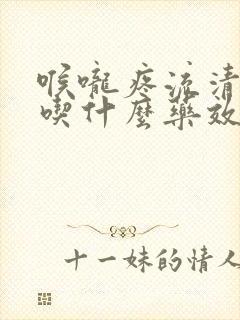 喉嚨疼流清
喫什麼藥效
十一妹的情人